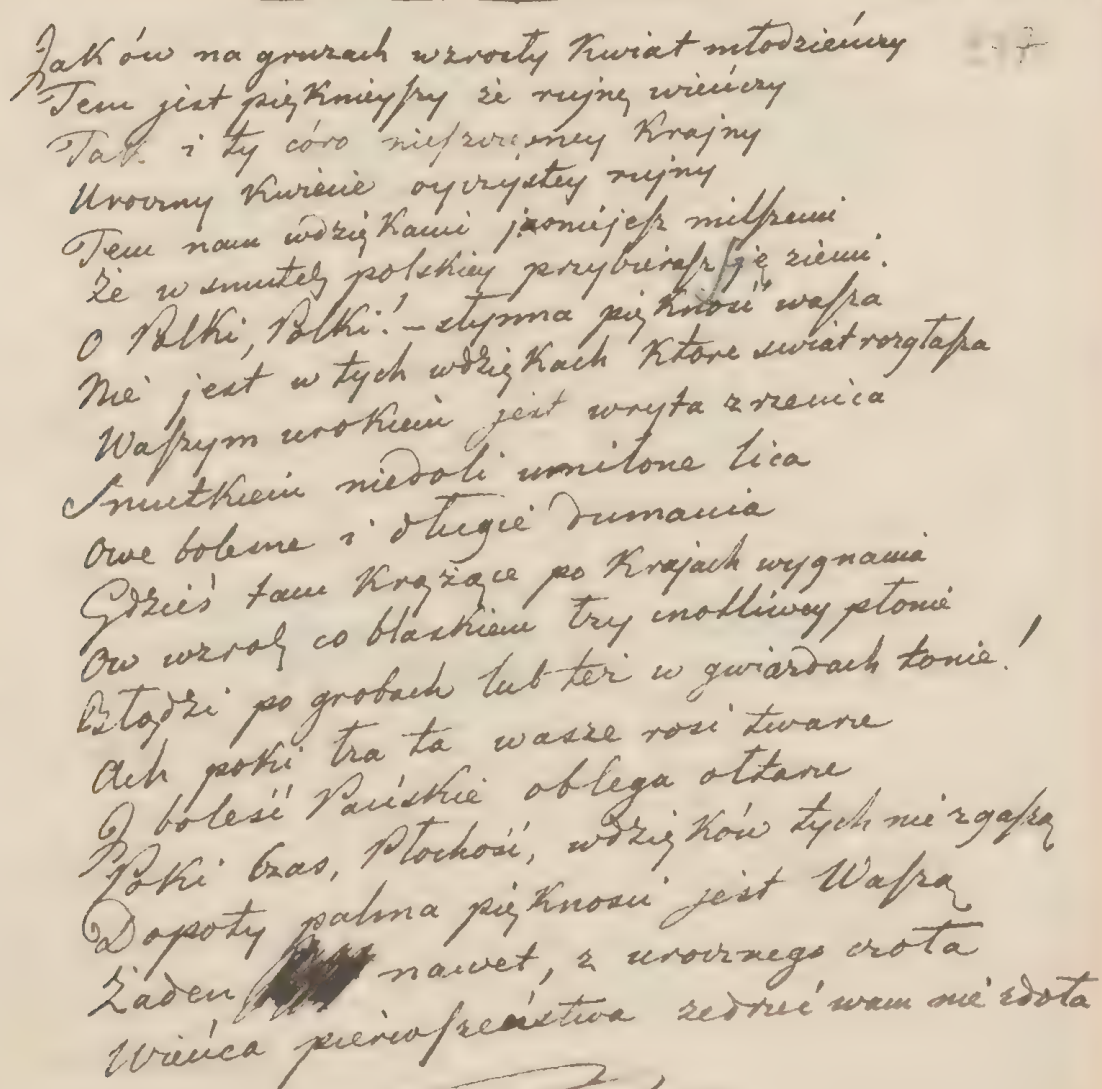 Jak ów na gruzach wzrosły kwiat młodzieńczy
Tem jest pięknieyszy że rujnę wieńczy
Tak i ty córo nieszczęsney krajny
Uroczny kwiecie oyczystey rujny
Tem nam wdziękami jasniejesz milszemi
Że w smutek polskiey przybierasz się ziemi.
O Polki, Polki! – słynna piękność wasza
Nie jest w tych wdziękach które swiat rozgłasza
Waszym urokiem jest wryta zrzenica
Smutkiem niedoli umilone lica
Owe bolesne i długie dumania
Gdzieś tam krążące po krajach wygnania
Ow wzrok co blaskiem łzy modliwey płonie
Błądzi po grobach lub też w gwiazdach tonie!
Ach poki łza ta wasze rosi twarze
I boleść Pańskie oblega ołtarze
Poki Czas, Płochość, wdzięków tych nie zgaszą
Dopoty palma pięknosci jest Waszą
Żaden nawet, z urocznego czoła
Wieńca pierwszeństwa zedrzeć wam nie zdoła